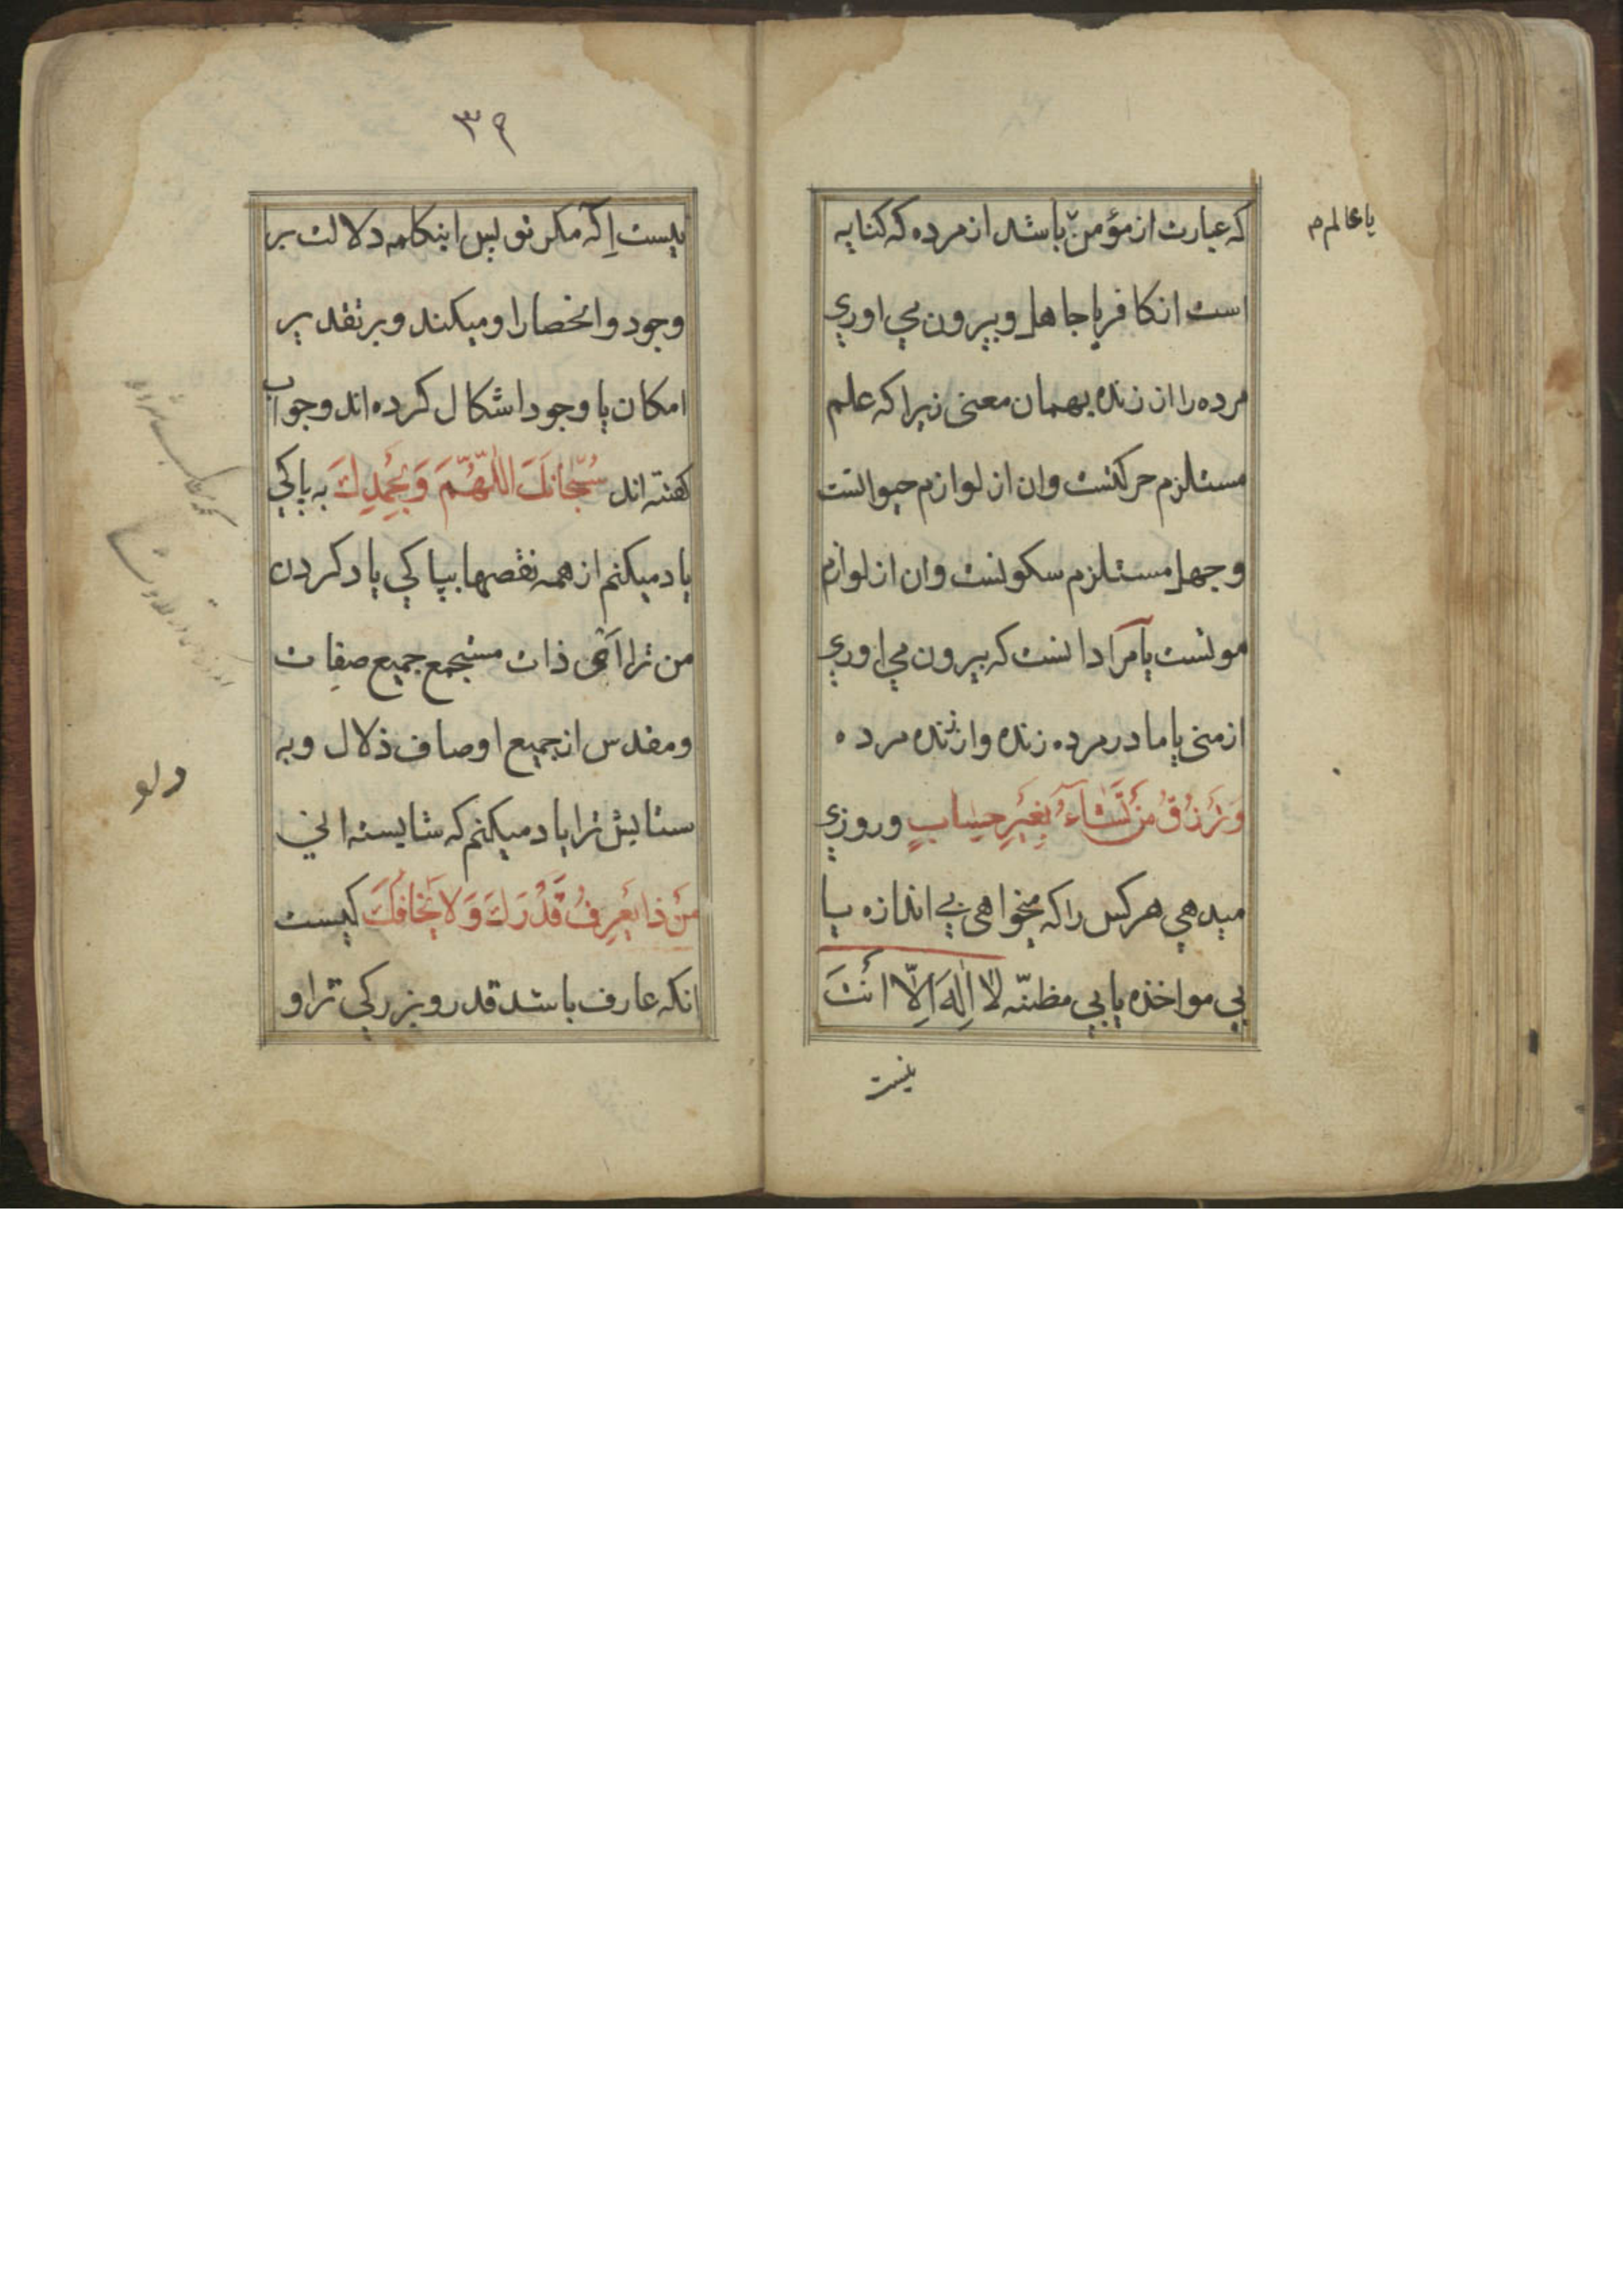 که عبارت از مؤمن باشد از مرده که کنایه
یا عالم م
است از کافر یا جاهل و بیرون می اوری
مرده را از زنده بهمان معنی زیرا که علم
مستلزم حرکتست وان از لوازم حیوانست
و جهل مستلزم سکونست وان از لوازم
موتست یا مراد انست که بیرون می اوری
از منی یا مادر مرده زنده واز زنده مرده
وَتَرْزُقُ مَنْ تَشَآءُ بِغَيْرِ حِسٰابٍ و روزی
میدهی هر کس را که میخواهی بی اندازه یا
بی مواخذه یا بی مظنّه لا اِلٰهَ اِلّا اَنْتَ
نیست
۳۹
نیست اِلٓه مکر تو پس اینکلمه دلالت بر
وجود و انحصار او میکند و بر تقدیر
امکان یا وجود اشکال کرده اند و جواب
کفته اند سُبْحانَكَ اللّٰهُمَّ وَبِحَمْدِكَ به پاکی
یاد میکنم از همه نقصها بپاکی یاد کردن
من ترا ای ذات مستجمع جمیع صفات
و مقدس از جمیع اوصاف ذلال و به
ستایش ترا یاد میکنم که شایسته انی
مَنْ ذا يَعْرِفُ قَدْرَكَ وَلا يَخافُكَ کیست
انکه عارف باشد قدر و بزرکی ترا و